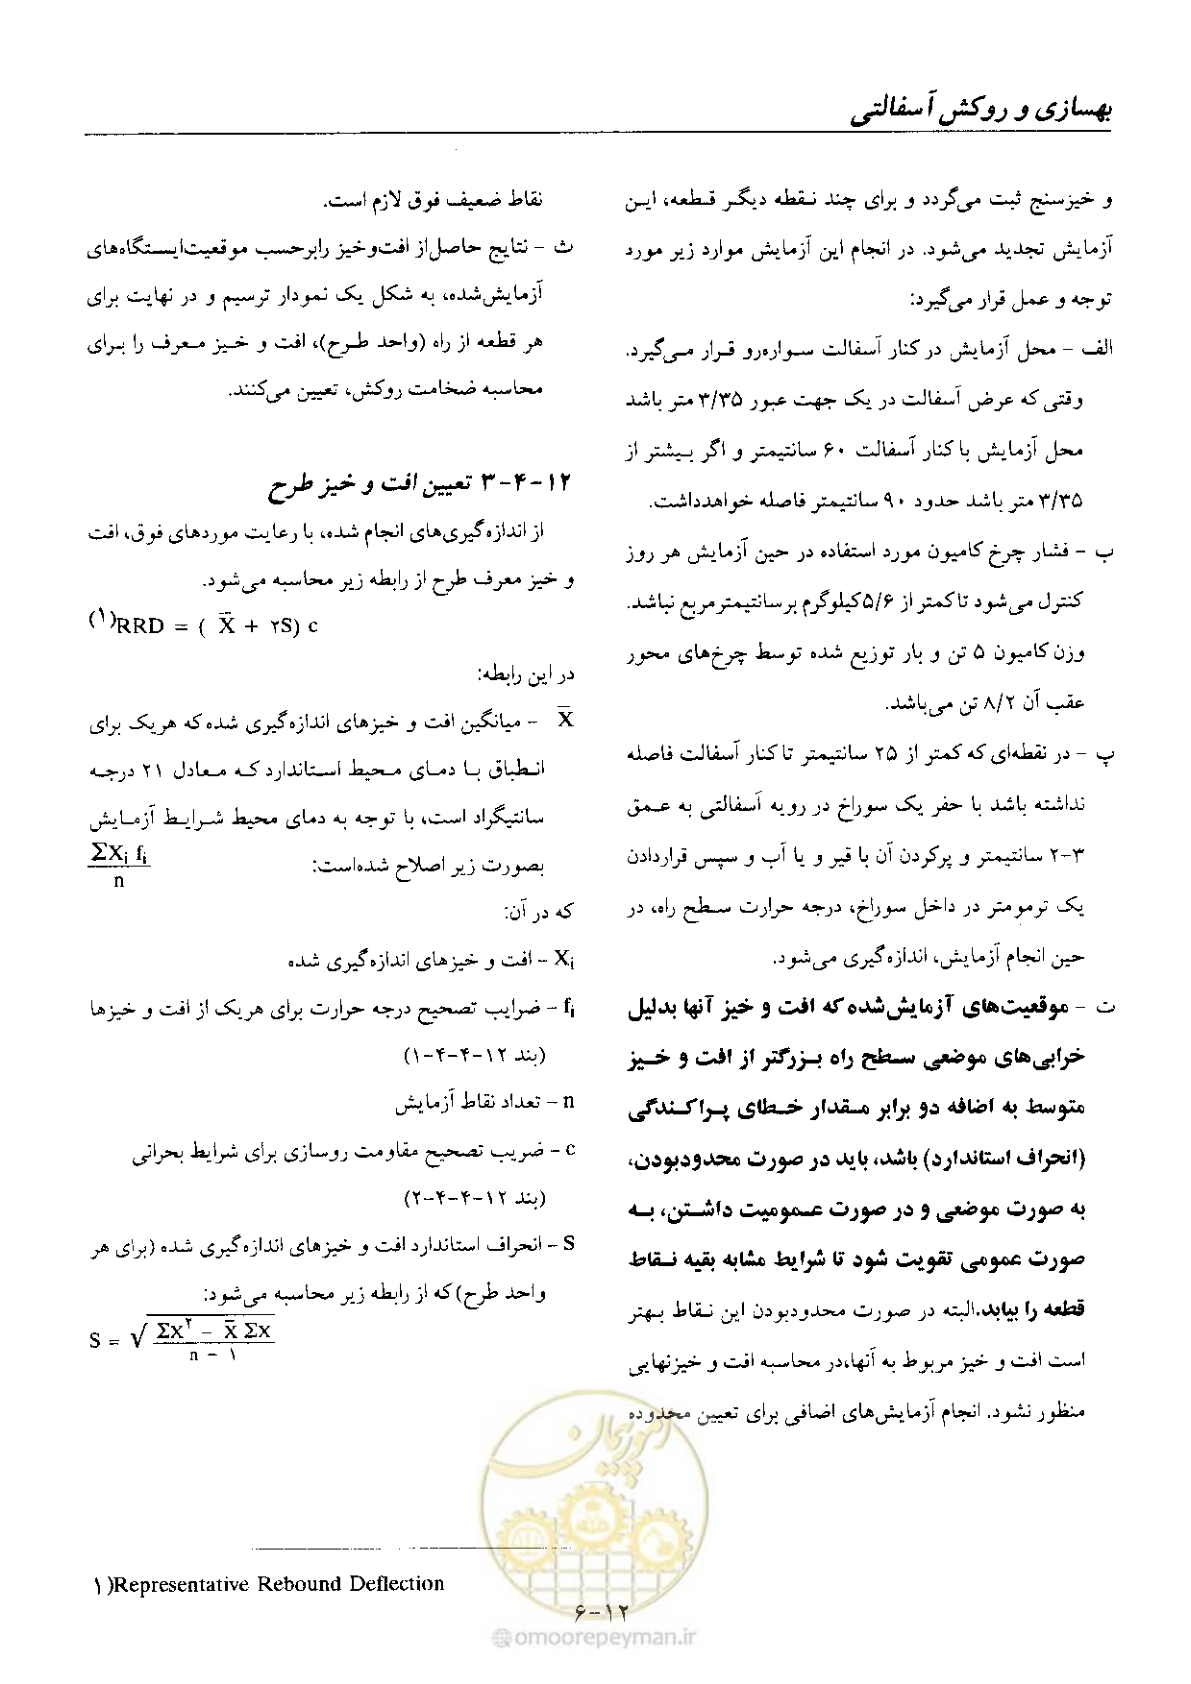 بهسازی و روکش آسفالتی
و خیزسنج ثبت می‌گردد و برای چند نقطه دیگر قطعه، این
آزمایش تجدید می‌شود. در انجام این آزمایش موارد زیر مورد
توجه و عمل قرار می‌گیرد:
الف - محل آزمایش در کنار آسفالت سواره‌رو قرار می‌گیرد.
وقتی که عرض آسفالت در یک جهت عبور ۳/۳۵ متر باشد
محل آزمایش با کنار آسفالت ۶۰ سانتیمتر و اگر بیشتر از
۳/۳۵ متر باشد حدود ۹۰ سانتیمتر فاصله خواهدداشت.
ب - فشار چرخ کامیون مورد استفاده در حین آزمایش هر روز
کنترل می‌شود تا کمتر از ۵/۶ کیلوگرم برسانتیمترمربع نباشد.
وزن کامیون ۵ تن و بار توزیع شده توسط چرخ‌های محور
عقب آن ۸/۲ تن می‌باشد.
پ - در نقطه‌ای که کمتر از ۲۵ سانتیمتر تا کنار آسفالت فاصله
نداشته باشد با حفر یک سوراخ در رویه آسفالتی به عمق
۲-۳ سانتیمتر و پرکردن آن با قیر و یا آب و سپس قراردادن
یک ترمومتر در داخل سوراخ، درجه حرارت سطح راه، در
حین انجام آزمایش، اندازه‌گیری می‌شود.
ت - موقعیت‌های آزمایش‌شده که افت و خیز آنها بدلیل
خرابی‌های موضعی سطح راه بزرگتر از افت و خیز
متوسط به اضافه دو برابر مقدار خطای پراکندگی
(انحراف استاندارد) باشد، باید در صورت محدودبودن،
به صورت موضعی و در صورت عمومیت داشتن، به
صورت عمومی تقویت شود تا شرایط مشابه بقیه نقاط
قطعه را بیابد. البته در صورت محدودبودن این نقاط بهتر
است افت و خیز مربوط به آنها، در محاسبه افت و خیزنهایی
منظور نشود. انجام آزمایش‌های اضافی برای تعیین محدوده
نقاط ضعیف فوق لازم است.
ث - نتایج حاصل از افت‌وخیز رابرحسب موقعیت‌ایستگاه‌های
آزمایش‌شده، به شکل یک نمودار ترسیم و در نهایت برای
هر قطعه از راه (واحد طرح)، افت و خیز معرف را برای
محاسبه ضخامت روکش، تعیین می‌کنند.
۱۲-۴-۳ تعیین افت و خیز طرح
از اندازه‌گیری‌های انجام شده، با رعایت موردهای فوق، افت
و خیز معرف طرح از رابطه زیر محاسبه می‌شود.
(۱)RRD = ( X̄ + ۲S) c
در این رابطه:
X̄ - میانگین افت و خیزهای اندازه‌گیری شده که هریک برای
انطباق با دمای محیط استاندارد که معادل ۲۱ درجه
سانتیگراد است، با توجه به دمای محیط شرایط آزمایش
بصورت زیر اصلاح شده‌است: ΣXi fi / n
که در آن:
Xi - افت و خیزهای اندازه‌گیری شده
fi - ضرایب تصحیح درجه حرارت برای هریک از افت و خیزها
(بند ۱۲-۴-۴-۱)
n - تعداد نقاط آزمایش
c - ضریب تصحیح مقاومت روسازی برای شرایط بحرانی
(بند ۱۲-۴-۴-۲)
S - انحراف استاندارد افت و خیزهای اندازه‌گیری شده (برای هر
واحد طرح) که از رابطه زیر محاسبه می‌شود:
S = √ (Σx² - X̄ Σx) / (n - ۱)
۱ )Representative Rebound Deflection
۱۲-۶
امور پیمان
omoorepeyman.ir